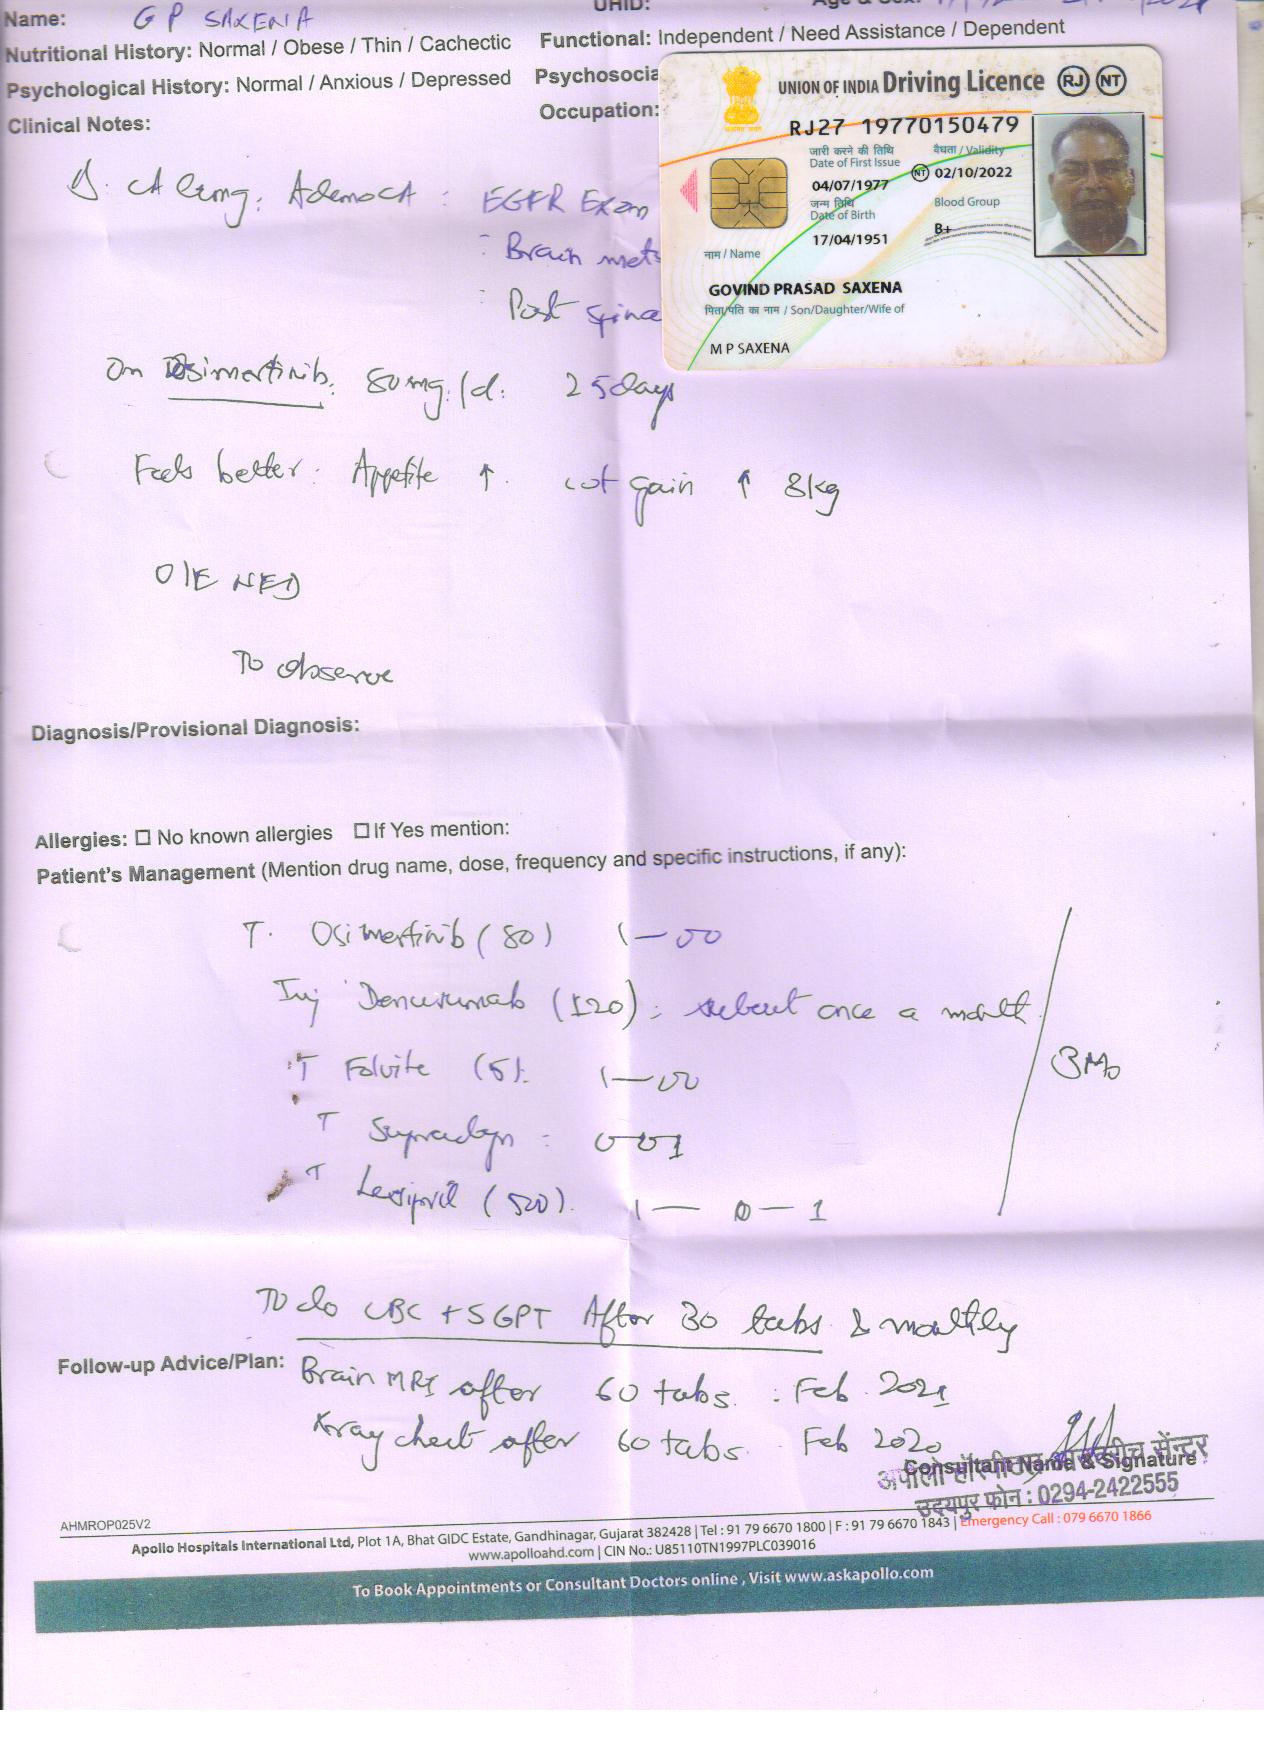 Name: G P SAXENA
UHID:
Age & Sex:
Nutritional History: Normal / Obese / Thin / Cachectic
Functional: Independent / Need Assistance / Dependent
Psychological History: Normal / Anxious / Depressed
Psychosocia
Clinical Notes:
Occupation:
UNION OF INDIA Driving Licence RJ NT
RJ27 19770150479
जारी करने की तिथि
Date of First Issue
04/07/1977
वैधता / Validity
NT 02/10/2022
जन्म तिथि
Date of Birth
17/04/1951
Blood Group
B+
नाम / Name
GOVIND PRASAD SAXENA
पिता/पति का नाम / Son/Daughter/Wife of
M P SAXENA
CA lung. AdenoCA : EGFR Exon
- Brain mets
: Post spine
On Osimertinib. 80mg/d. 25days
Feels better. Appetite ↑. wt gain ↑ 8kg
O/E NED
To observe
Diagnosis/Provisional Diagnosis:
Allergies: ☐ No known allergies ☐ If Yes mention:
Patient's Management (Mention drug name, dose, frequency and specific instructions, if any):
T. Osimertinib (80) 1—00
Inj Denusumab (120) : subcut once a month
T Folvite (5). 1—00
3Mo
T Supradyn = 0-0-1
T (520). 1 — 0 — 1
To do CBC + SGPT After 30 tabs & monthly
Follow-up Advice/Plan: Brain MRI after 60 tabs. : Feb 2021
Xray chest after 60 tabs. Feb 2020
Consultant Name & Signature
अपोलो हॉस्पीटल सेन्टर
उदयपुर फोन : 0294-2422555
AHMROP025V2
Apollo Hospitals International Ltd, Plot 1A, Bhat GIDC Estate, Gandhinagar, Gujarat 382428 | Tel : 91 79 6670 1800 | F : 91 79 6670 1843 | Emergency Call : 079 6670 1866
www.apolloahd.com | CIN No.: U85110TN1997PLC039016
To Book Appointments or Consultant Doctors online , Visit www.askapollo.com